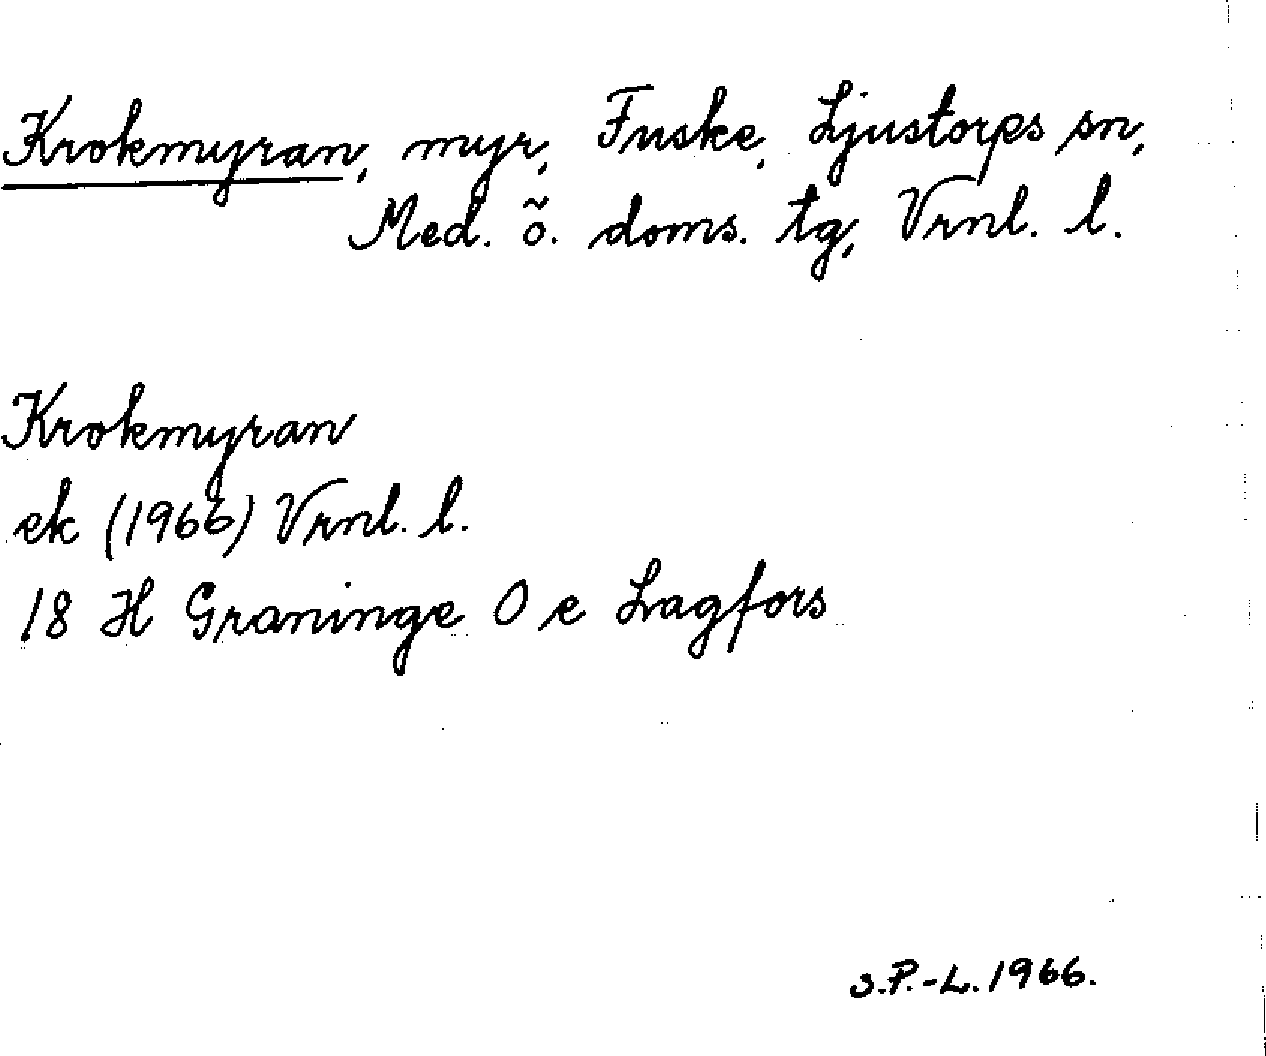 Krokmyran, myr, Fuske, Ljustorps sn,
Med. ö. doms. tg, Vrnl. l.
Krokmyran
ek (1966) Vrnl. l.
18 H Graninge 0 e Lagfors
S.P.-L. 1966.